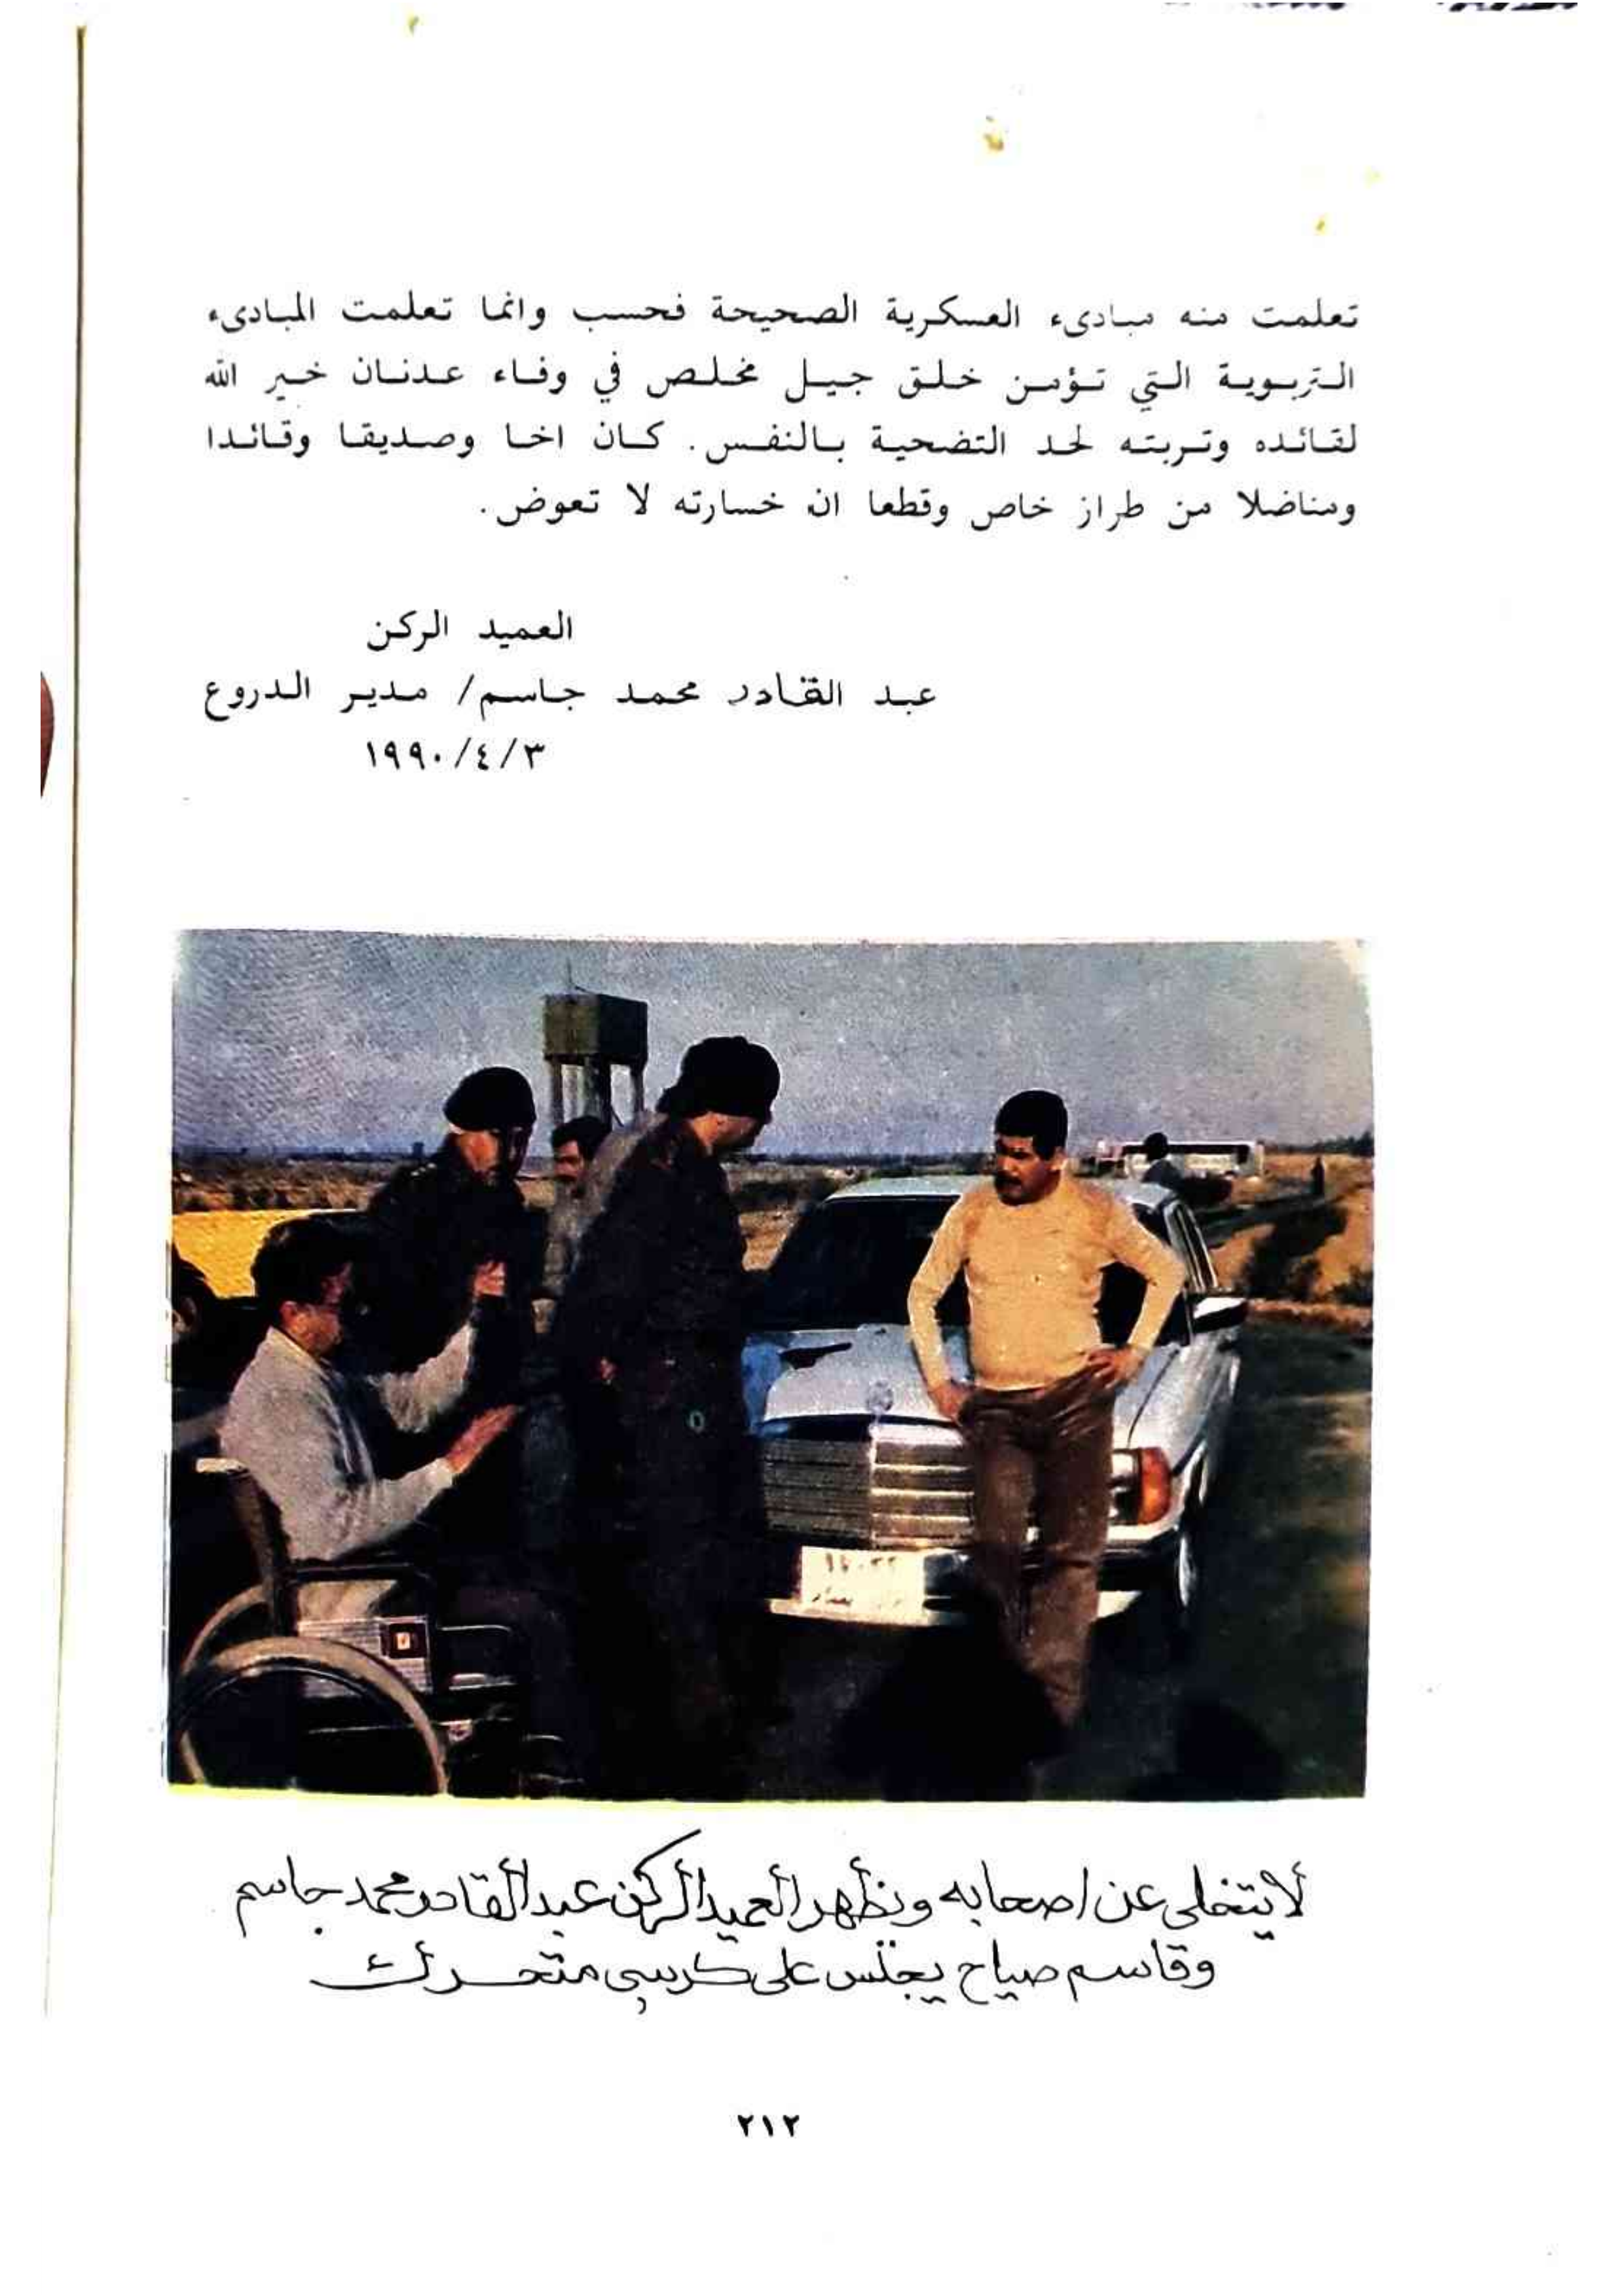 تعلمت منه مبادىء العسكرية الصحيحة فحسب وانما تعلمت المبادىء
التربوية التي تؤمن خلق جيل مخلص في وفاء عدنان خير الله
لقائده وتربته لحد التضحية بالنفس. كان اخا وصديقا وقائدا
ومناضلا من طراز خاص وقطعا ان خسارته لا تعوض.
العميد الركن
عبد القادر محمد جاسم/ مدير الدروع
١٩٩٠/٤/٣
لا يتخلى عن اصحابه ونظهر العميد الركن عبد القادر محمد جاسم
وقاسم صياح يجلس على كرسي متحرك
٢١٢